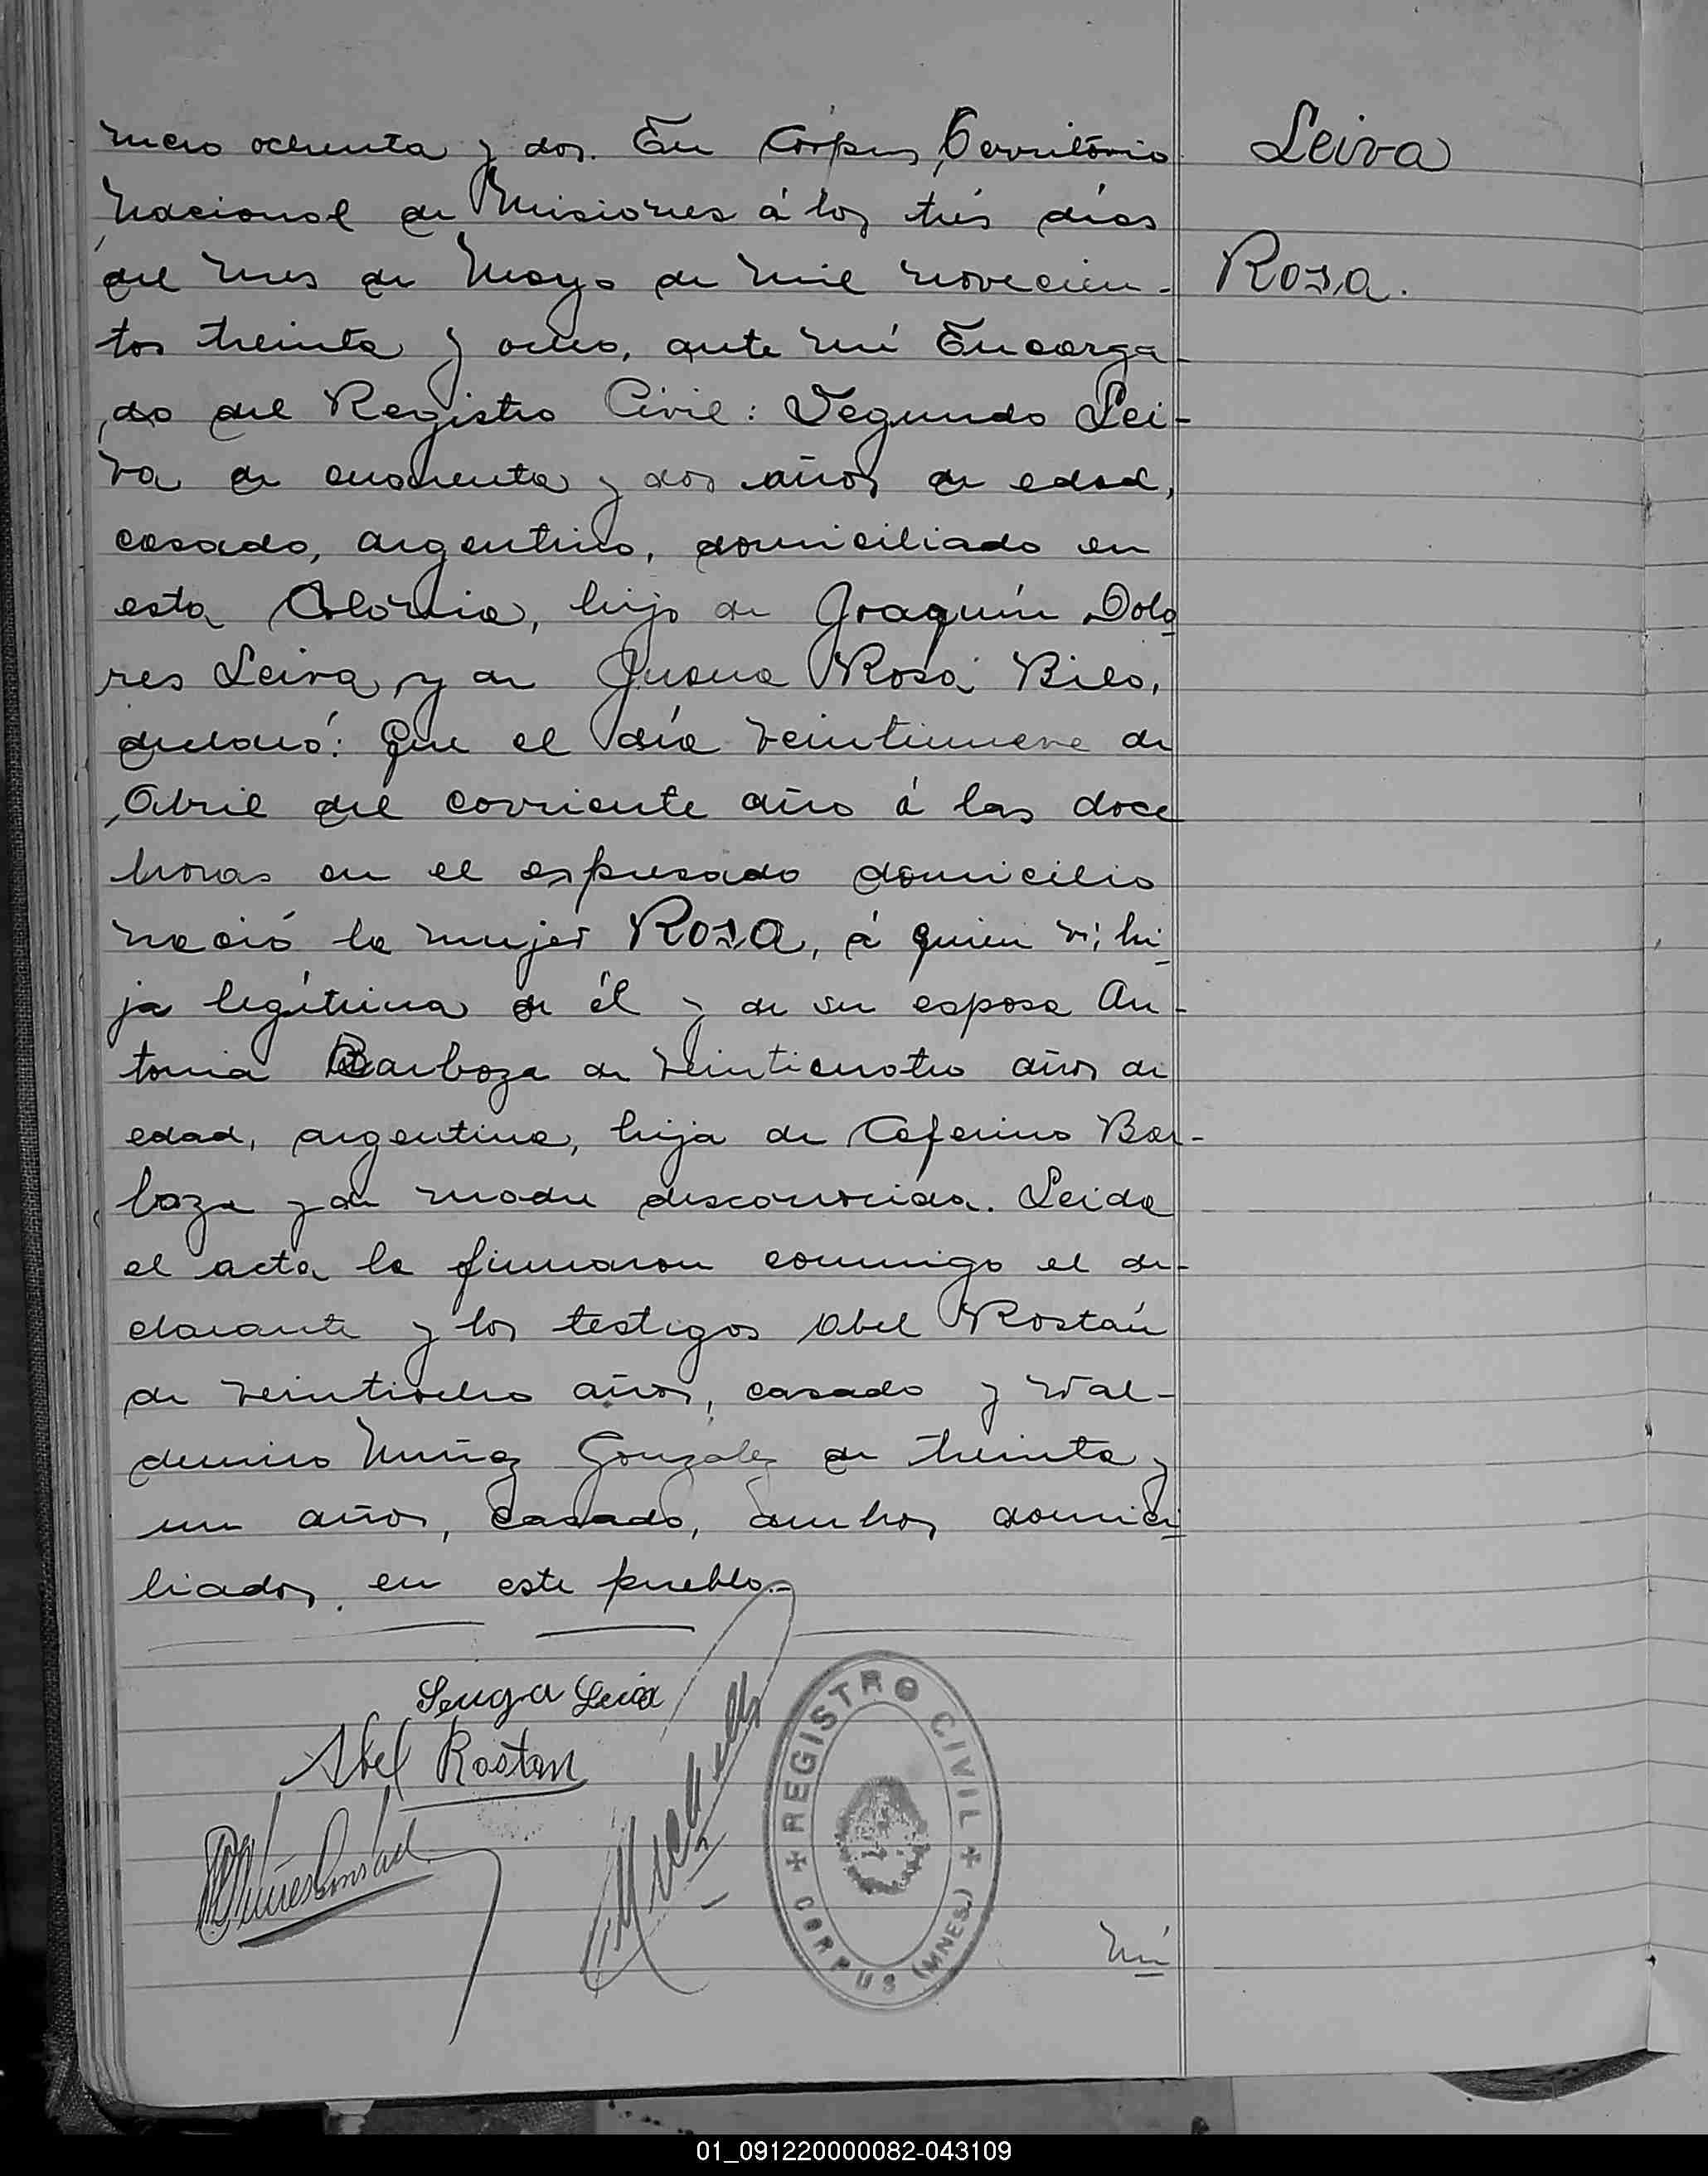 mero ochenta y dos. En Corpus, Territorio
Nacional de Misiones á los trés días
del mes de Mayo de mil novecien-
tos treinta y ocho, ante mí Encarga-
do del Registro Civil: Segundo Lei-
va de cuarenta y dos años de edad,
casado, argentino, domiciliado en
esta Colonia, hijo de Joaquín Dolo
res Leiva y de Juana Rosa
declaró: Que el día veintinueve de
Abril del corriente año á las doce
horas en el espresado domicilio
nació la mujer Rosa, á quien ví; hi
ja legítima de él y de su esposa An-
tonia Barboza de veinticuatro años de
edad, argentina, hija de Ceferino Bar-
boza y de madre desconocida. Leida
el acta la firmaron conmigo el de-
clarante y los testigos Abel Rostán
de veintiocho años, casado y Wal-
demiro Nuñez González de treinta y
un años, casado, ambos domici
liados en este pueblo.-
Leiva
Rosa.
Abel Rostan
REGISTRO CIVIL
CORPUS (MNES.)
Nú
01_091220000082-043109